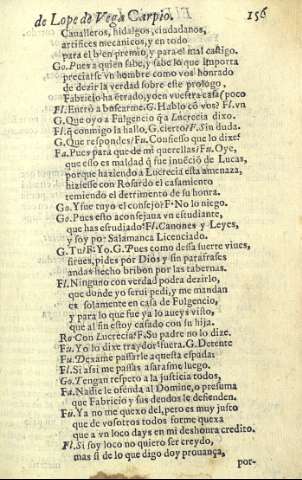 de Lope de Vega Carpio. 156
Caualleros, hidalgos, ciudadanos,
artifices mecanicos, y en todo
para el bien premio, y para el mal castigo.
Go. Pues a quien sabe, y sabe lo que importa
preciarse vn hombre como vos honrado
de dezir la verdad sobre este prologo,
Fabricio ha errado, y o en vuestra casa poco
Fl. Entrò a buscarme. G. Hablo cō vos? Fl. vn
G. Que oyo a Fulgencio q̃ a Lucrecia dixo.
Fl. q̃ conmigo la hallo, G. cierto? F. Sin duda.
G. Que respondes? Fu. Confiesso que lo dixe
Fa. Pues para que de mi querellas? Fu. Oye,
que esso es maldad q̃ fue inuēciō de Lucas,
porque haziendo a Lucrecia esta amenaza,
hiziesse con Rosardo el casamiento
temiendo el detrimento de su honra.
Go. Y fue tuyo el consejo? F. No lo niego.
Go. Pues esto aconsejaua vn estudiante,
que has estudiado? Fl. Canones y Leyes,
y soy por Salamanca Licenciado.
G. Tu? F. Yo. G. Pues como dessa suerte viues,
sirues, pides por Dios y sin parafrases
andas hecho bribon por las tabernas.
Fl. Ninguno con verdad podra dezirlo,
que donde yo serui pedi, y me mandan
es solamente en casa de Fulgencio,
y para lo que fue ya lo aueys visto,
que al fin estoy casado con su hija.
Ro Con Lucrecia? F. Su padre no lo dize.
Fu. Yo lo dixe traydor? fuera. G. Detente
Fu. Dexame passarle aquesta espada:
Fl. Si assi me passas assarasme luego.
Go. Tengan respeto a la justicia todos,
Fa. Nadie le ofenda al Domine, o presuma
que Fabricio y sus deudos le defienden.
Fu. Ya no me quexo del, pero es muy justo
que de vosotros todos forme quexa
que a vn loco days en mi deshonra credito.
Fl. Si soy loco no quiero ser creydo,
mas si de lo que digo doy prouança,
por-